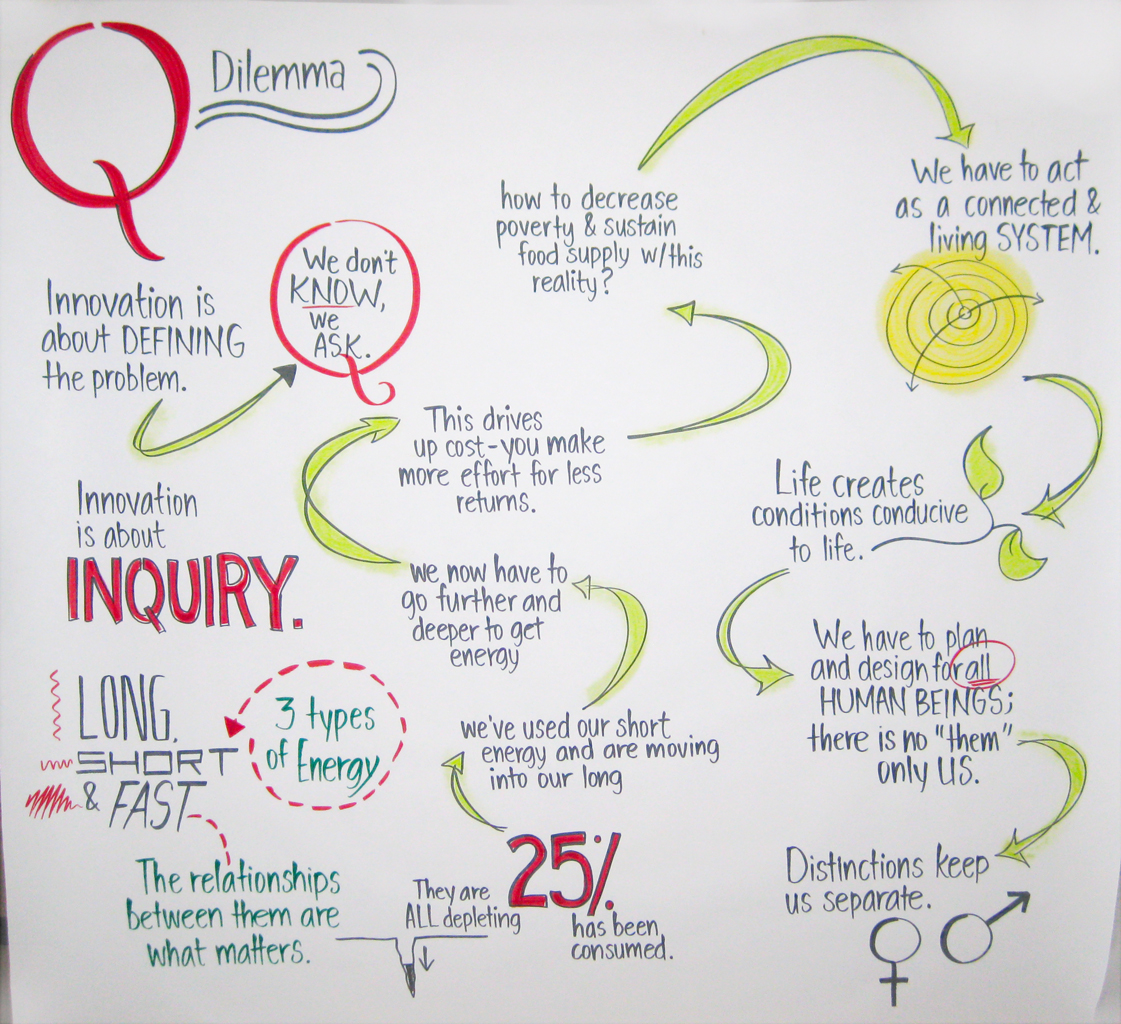 Q Dilemma
Innovation is
about DEFINING
the problem.
We don't
KNOW,
we
ASK.
Innovation
is about
INQUIRY.
3 types
of Energy
LONG,
SHORT
& FAST
The relationships
between them are
what matters.
They are
ALL depleting
25%
has been
consumed.
we've used our short
energy and are moving
into our long
we now have to
go further and
deeper to get
energy
This drives
up cost-you make
more effort for less
returns.
how to decrease
poverty & sustain
food supply w/this
reality?
We have to act
as a connected &
living SYSTEM.
Life creates
conditions conducive
to life.
We have to plan
and design for all
HUMAN BEINGS;
there is no "them"
only US.
Distinctions keep
us separate.